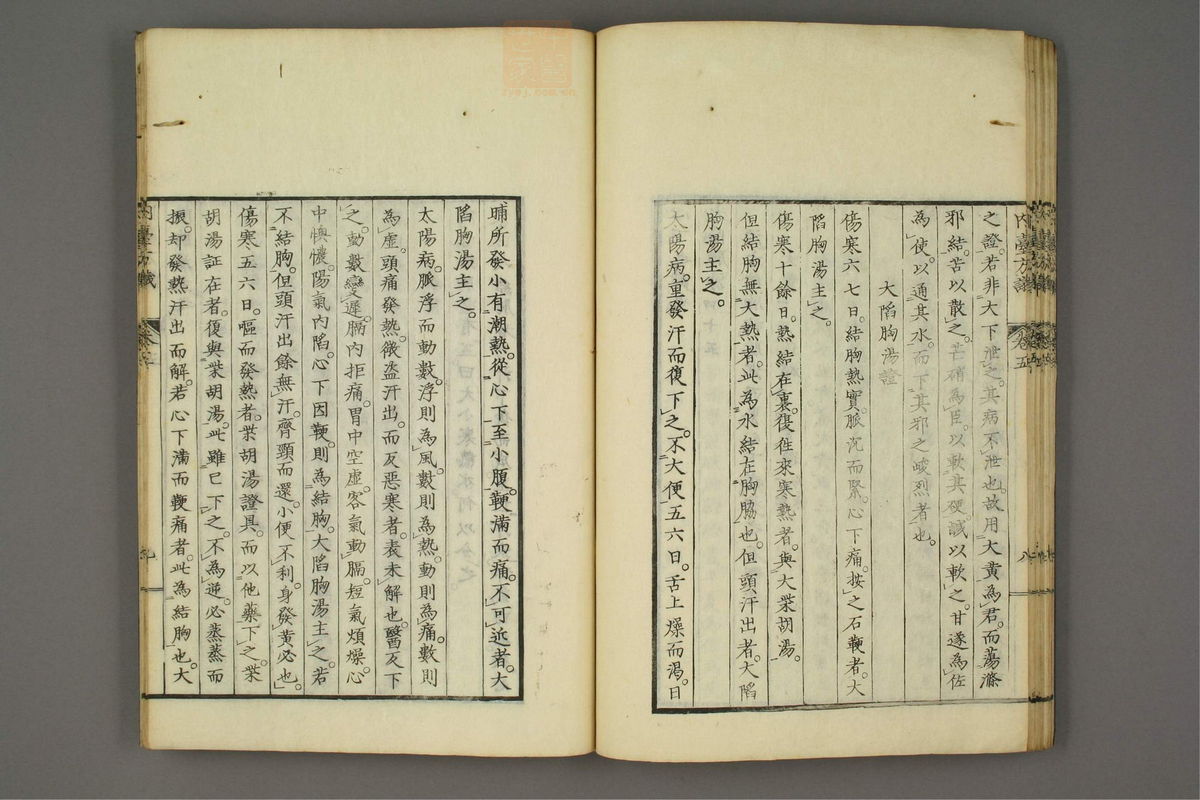 之證。若非大下泄之。其病不泄也。故用大黃為君。而蕩滌
邪結。苦以散之。芒硝為臣。以軟其硬。鹹以軟之。甘遂為佐
為使。以通其水。而下其邪之峻烈者也。
大陷胸湯證
傷寒六七日。結胸熱實。脈沉而緊。心下痛。按之石鞕者。大
陷胸湯主之。
傷寒十餘日。熱結在裏。復往來寒熱者。與大柴胡湯。
但結胸無大熱者。此為水結在胸脇也。但頭汗出者。大陷
胸湯主之。
太陽病。重發汗而復下之。不大便五六日。舌上燥而渴。日
晡所發小有潮熱。從心下至小腹。鞕滿而痛。不可近者。大
陷胸湯主之。
太陽病。脈浮而動數。浮則為風。數則為熱。動則為痛。數則
為虛。頭痛發熱。微盜汗出。而反惡寒者。表未解也。醫反下
之。動數變遲。膈內拒痛。胃中空虛。客氣動膈。短氣煩燥。心
中懊憹。陽氣內陷。心下因鞕。則為結胸。大陷胸湯主之。若
不結胸。但頭汗出餘無汗。齊頸而還。小便不利。身發黃必也。
傷寒五六日。嘔而發熱者。柴胡湯證具。而以他藥下之。柴
胡湯証在者。復與柴胡湯。此雖已下之。不為逆。必蒸蒸而
振。却發熱汗出而解。若心下滿而鞕痛者。此為結胸也。大
內臺方議
卷五
八